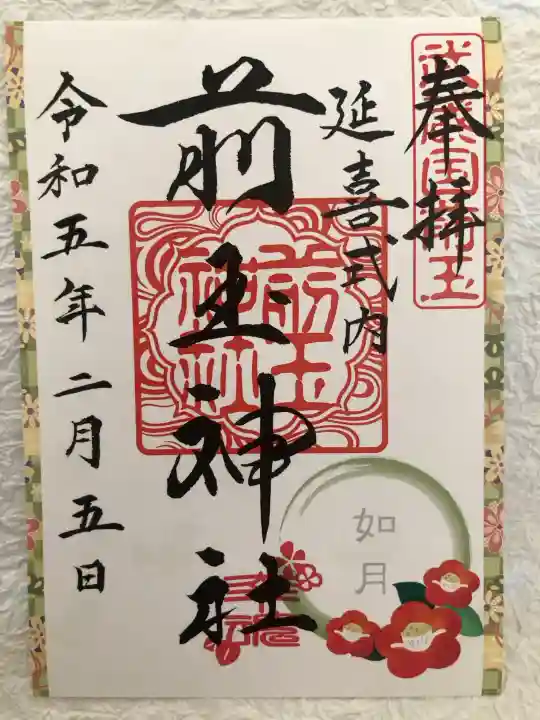 奉拝
武蔵国埼玉
延喜式内
前玉神社
前玉神社
令和五年二月五日
如月